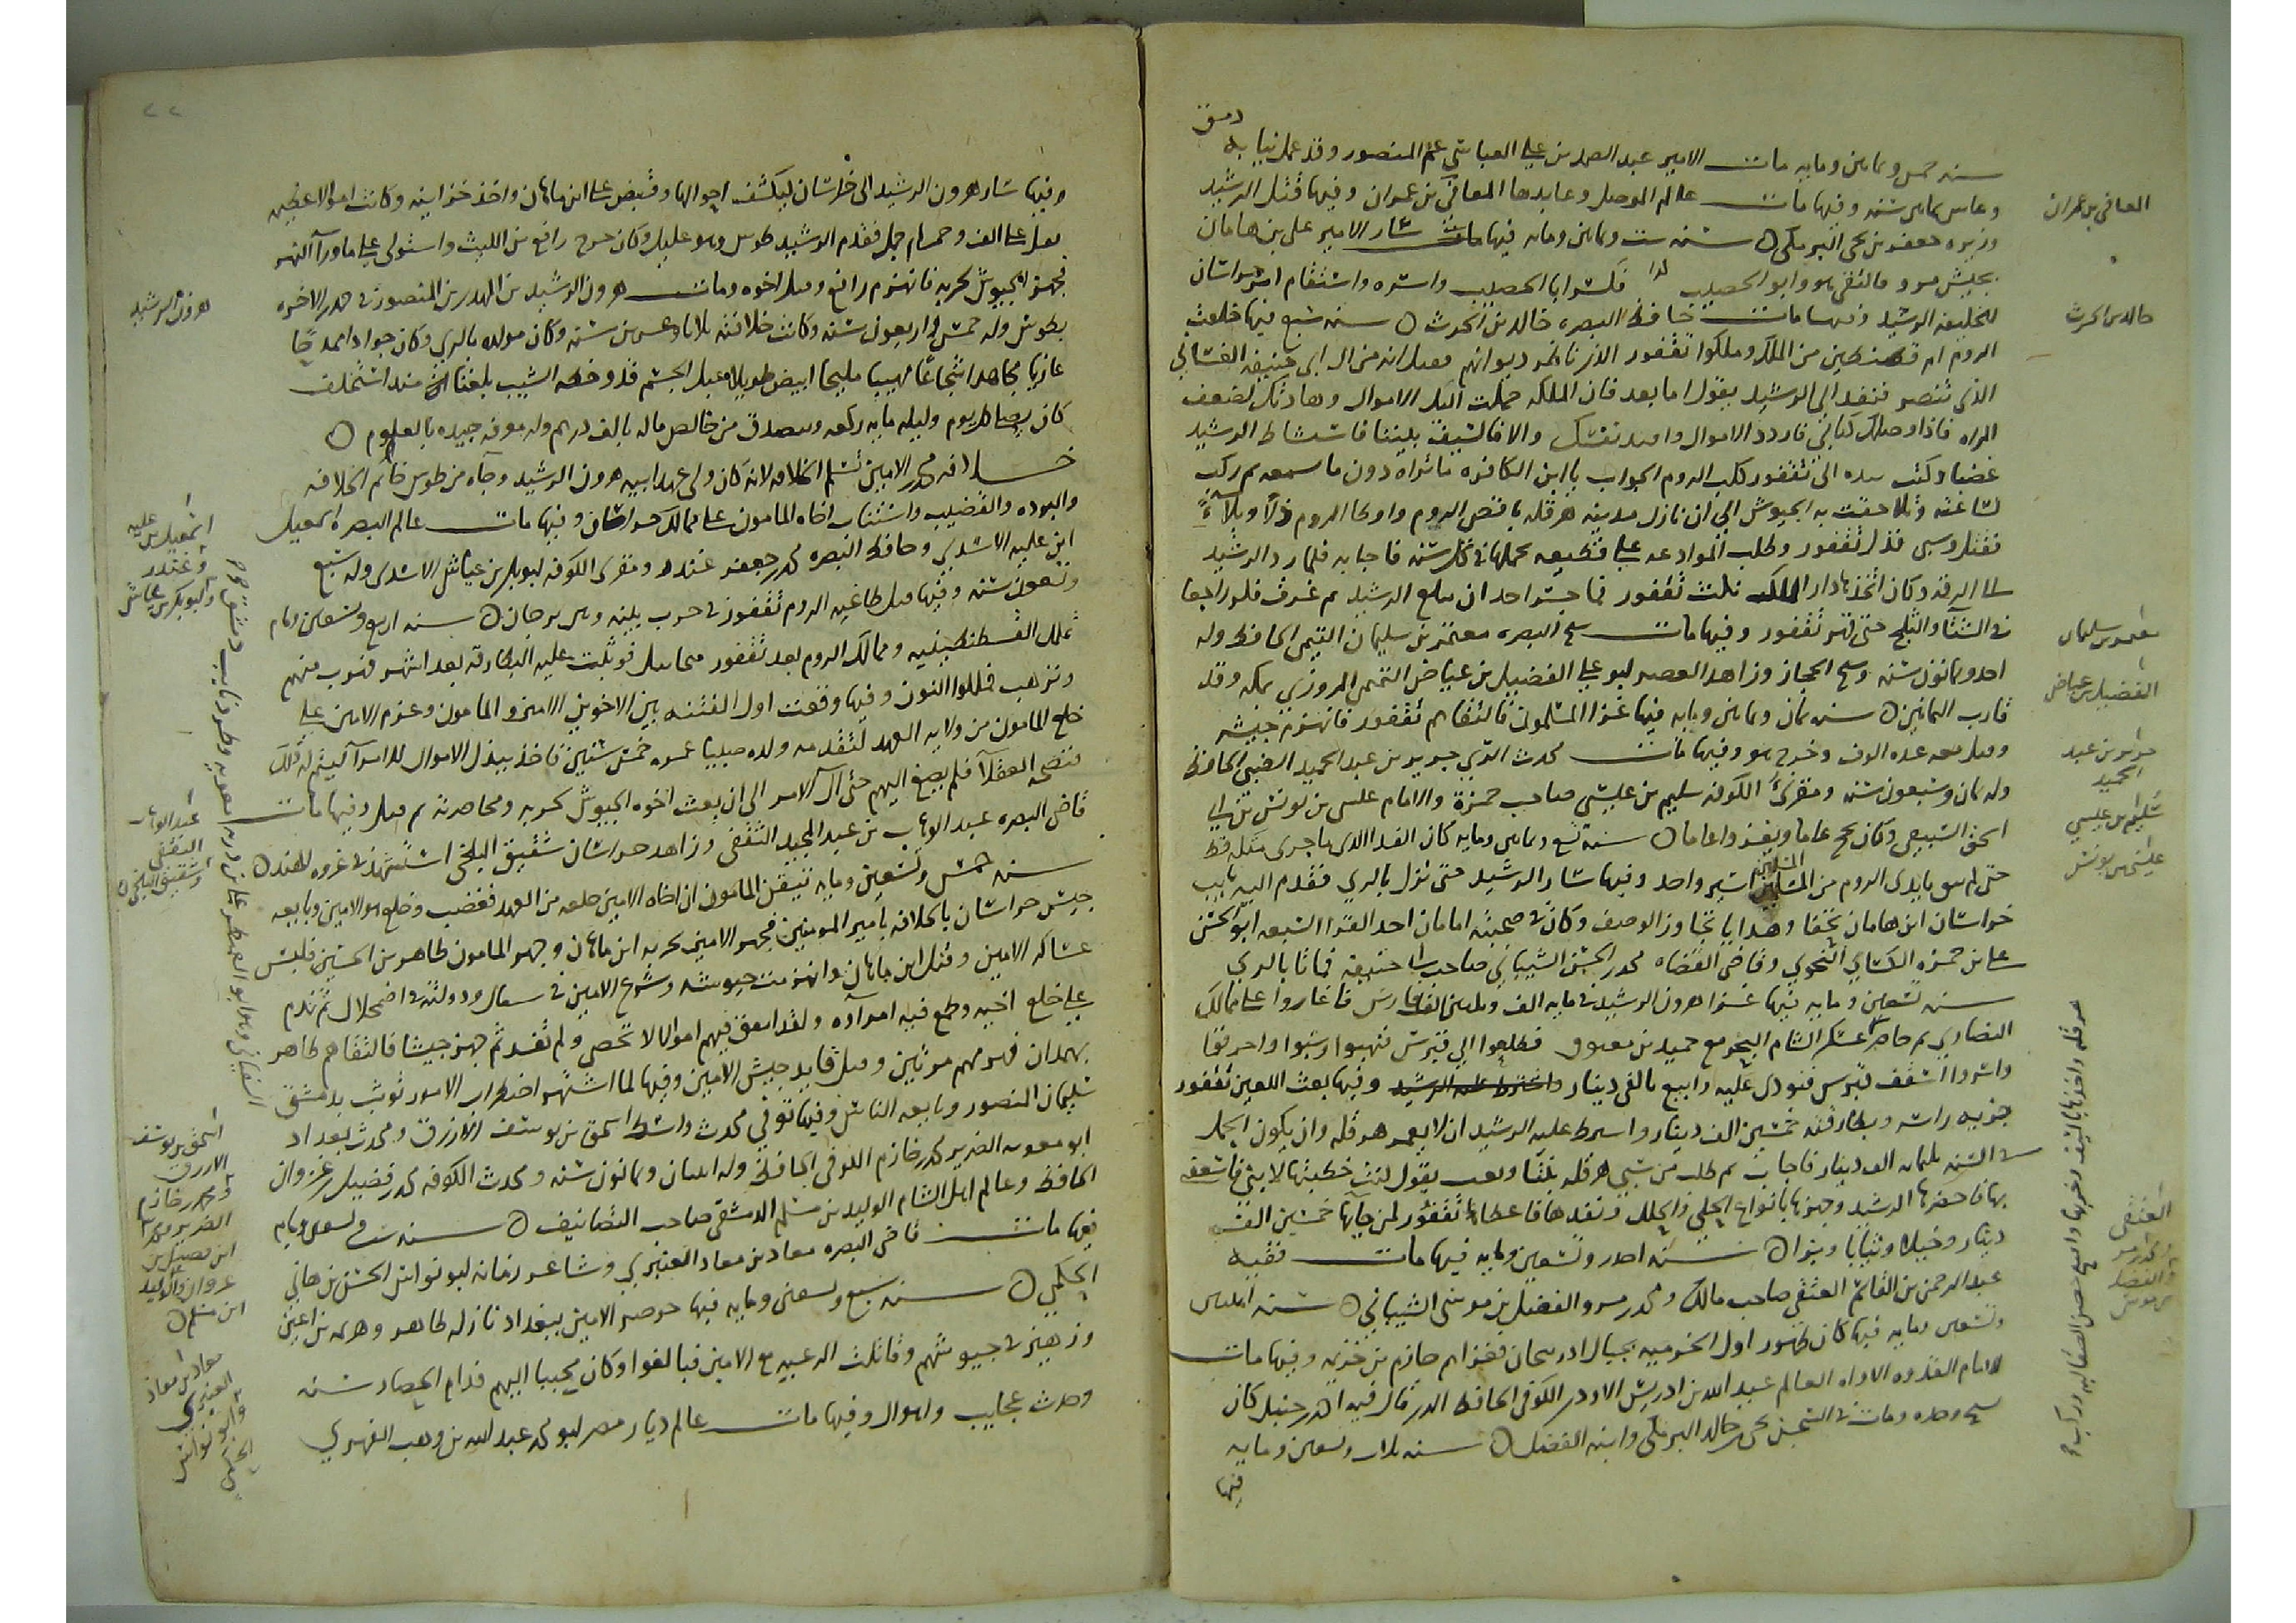 دمشق
سنه خمس وثمانين ومايه مات الامير عبد الصمد بن علي العباسي عم المنصور وقد عمل نيابه
وعاش ثمانين سنه وفيها مات عالم الموصل وعابدها المعافى بن عمران وفيها قتل الرشيد
وزيره جعفر بن يحيى البرمكي سنه ست وثمانين ومايه فيها سار الامير علي بن هامان
بجيش مرو فالتقى هو وابو الخصيب فكسر ابا الخصيب واسره واستقام امر خراسان
للخليفه الرشيد وفيها مات حافظ البصره خالد بن الحرث سنه سبع فيها خلعت
الروم ام قسطنطين من الملك وملكوا نقفور الذي ناظر ديوانهم فقيل انه من ال ابي جفنه الغساني
الذي تنصر فنفذ الى الرشيد يقول اما بعد فان الملكه حملت اليك الاموال وهادنتك لضعف
المراه فاذا وصلك كتابي فاردد الاموال وافتد نفسك والا فالسيف بيننا فاستشاط الرشيد
غضبا وكتب بيده الى نقفور كلب الروم الجواب يا ابن الكافره ما تراه دون ما سمعه ثم ركب
لساعته وتلاحقت به الجيوش الى ان نازل مدينه هرقله باقصى الروم واوطا الروم ذلا وبلاء
فقتل وسبى فذل نقفور وطلب الموادعه على قطيعه يحملها في كل سنه فاجابه فلما رد الرشيد
الى الرقه وكان اتخذها دار الملك نكث نقفور فما جسر احد ان يبلغ الرشيد ثم عرف فكر راجعا
في الشتا والثلج حتى قهر نقفور وفيها مات شيخ البصره معتمر بن سليمان التيمي الحافظ وله
احد وثمانون سنه وشيخ الحجاز وزاهد العصر ابو علي الفضيل بن عياض التميمي المروزي بمكه وقد
قارب الثمانين سنه ثمان وثمانين ومايه فيها غزا المسلمون فالتقاهم نقفور فانهزم جيشه
وقتل معه عده الوف وجرح هو وفيها مات محدث الري جرير بن عبد الحميد الضبي الحافظ
وله ثمان وسبعون سنه ومقرئ الكوفه سليم بن عيسى صاحب حمزة والامام عيسى بن يونس بن ابي
اسحق السبيعي وكان يحج عاما ويغزو عاما سنه تسع وثمانين ومايه كان الفدا الذي ما جرى مثله قط
حتى لم يبق بايدي الروم من المسلمين اسير واحد وفيها سار الرشيد حتى نزل بالري فقدم اليه نايب
خراسان ابن هامان تحفا وهدايا تجاوز الوصف وكان في صحبته امامان احد القرا السبعه ابو الحسن
علي بن حمزه الكسائي النحوي وقاضي القضاه محمد بن الحسن الشيباني صاحب ابي حنيفه فماتا بالري
سنه تسعين ومايه فيها غزا هرون الرشيد في مايه الف وثلثين الف فارس فاغاروا على ممالك
النصارى ثم حاصر عسكر الشام البحر مع حميد بن معيوف فطلعوا الى قبرس فنهبوا وسبوا واحرقوا
واسروا اسقف قبرس فنودي عليه وابيع بالفي دينار وفيها بعث اللعين نقفور
جزيه راسه وبطارقته خمسين الف دينار واشترط عليه الرشيد ان لا يعمر هرقله وان يكون الحمل
في السنه ثلثمايه الف دينار فاجاب ثم طلب من سبي هرقله بنتا وبعث يقول لانت خطبتها لابني فاسعفه
بها فاحضرها الرشيد وجهزها بانواع الحلي والحلل ونفذها فاعطاه نقفور لمن جابها خمسين الف
دينار وخيلا وثيابا وبزاه سنه احد وتسعين ومايه فيها مات فقيه
عبد الرحمن بن القاسم العتقي صاحب مالك والفضل بن موسى الشيباني سنه اثنين
وتسعين ومايه فيها كان ظهور اول الخرميه بجبال اذربيجان فغزاهم حازم بن خزيمه وفيها مات
الامام القدوه الاواه العالم عبد الله بن ادريس الاودي الكوفي الحافظ الذي قال فيه احمد بن حنبل كان
نسيج وحده ومات في السجن يحيى بن خالد البرمكي وابنه الفضل سنه ثلاث وتسعين ومايه
فيها
المعافى بن عمران
خالد بن الحرث
معتمر بن سليمان
الفضيل بن عياض
جرير بن عبد
الحميد
سليم بن عيسى
عيسى بن يونس
العتقي
والفضل
بن موسى
وفيها سار هرون الرشيد الى خراسان ليكشف احوالها وقبض على ابن ماهان واخذ خزاينه وكانت اموالا عظيمه
تحمل على الف وخمسمايه جمل فقدم الرشيد طوس وهو عليل وكان خرج رافع بن الليث واستولى على ماورا النهر
فجهز الجيوش لحربه فانهزم رافع وقتل اخوه ومات هرون الرشيد بن المهدي بن المنصور في جمادى الاخره
بطوس وله خمس واربعون سنه وكانت خلافته ثلاثا وعشرين سنه وكان مولده بالري وكان جوادا ممدحا
غازيا مجاهدا شجاعا مهيبا مليحا ابيض طويلا عبل الجسم قد وخطه الشيب بلغنا انه منذ استخلف
كان يصلي كل يوم وليله مايه ركعه ويتصدق من خالص ماله بالف درهم وله معرفه جيده بالعلوم
خلافه محمد الامين تسلم الخلافه لانه كان ولي عهد ابيه هرون الرشيد وجاه من طوس خاتم الخلافه
والبرده والقضيب واستناب اخاه المامون على ممالك خراسان وفيها مات عالم البصره اسمعيل
ابن عليه الاسدي وحافظ البصره محمد بن جعفر غندر ومقرئ الكوفه ابو بكر بن عياش الاسدي وله سبع
وتسعون سنه وفيها قتل طاغيه الروم نقفور في حرب بينه وبين برجان سنه اربع وتسعين ومايه
تملك القسطنطينيه وممالك الروم بعد نقفور ميخاييل فوثبت عليه البطارقه بعد اشهر فهرب منهم
وترهب فملكوا اليون وفيها وقعت اول الفتنه بين الاخوين الامين والمامون وعزم الامين على
خلع المامون من ولايه العهد لتقدمه ولده صبيا عمره خمس سنين فاخذ يبذل الاموال للامرا ليتم له ذلك
فنصحه العقلا فلم يصغ اليهم حتى آل الامر الى ان بعث اخوه الجيوش لحربه ومحاصرته ثم قتل وفيها مات
قاضي البصره عبد الوهاب بن عبد المجيد الثقفي وزاهد خراسان شقيق البلخي استشهد في غزوه للهند
سنه خمس وتسعين ومايه تيقن المامون ان اخاه الامين خلعه من العهد فغضب وخلع هو الامين وبايعه
جيش خراسان بالخلافه بامير المومنين فجهز الامين لحربه ابن ماهان وجهز المامون طاهر بن الحسين فلبس
عساكر الامين وقتل ابن ماهان وانهزمت جيوشه وشرع الامين في سفال ودولته في اضمحلال ثم ندم
على خلع اخيه وطمع فيه امراؤه ولقد انفق فيهم اموالا لا تحصى ولم تفد ثم جهز جيشا فالتقاهم طاهر
بهمدان فهزمهم مرتين وقتل قايد جيش الامين وفيها لما اشتهر اضطراب الامور توثب بدمشق
سليمان المنصور وبايعه الناس وفيها توفي محدث واسط اسحق بن يوسف الازرق ومحدث بغداد
ابو معويه الضرير محمد بن خازم الكوفي الحافظ وله اثنان وثمانون سنه ومحدث الكوفه محمد بن فضيل بن غزوان
الحافظ وعالم اهل الشام الوليد بن مسلم الدمشقي صاحب التصانيف سنه ست وتسعين ومايه
فيها مات قاضي البصره معاذ بن معاذ العنبري وشاعر زمانه ابو نواس الحسن بن هاني
الحكمي سنه سبع وتسعين ومايه فيها حوصر الامين ببغداد نازله طاهر وهرثمه بن اعين
وزهير في جيوشهم وقاتلت الرعيه مع الامين فبالغوا وكان محببا اليهم فدام الحصار سنه
وحدث عجايب واهوال وفيها مات عالم ديار مصر ابو محمد عبد الله بن وهب الفهري
هرون الرشيد
اسمعيل بن عليه
وغندر
وابو بكر بن عياش
عبد الوهاب
الثقفي
وشقيق البلخي
اسحق بن يوسف
الازرق
ومحمد بن خازم
الضرير ومحمد
ابن فضيل بن
غزوان والوليد
ابن مسلم
معاذ بن معاذ
العنبري
وابو نواس
الحسن